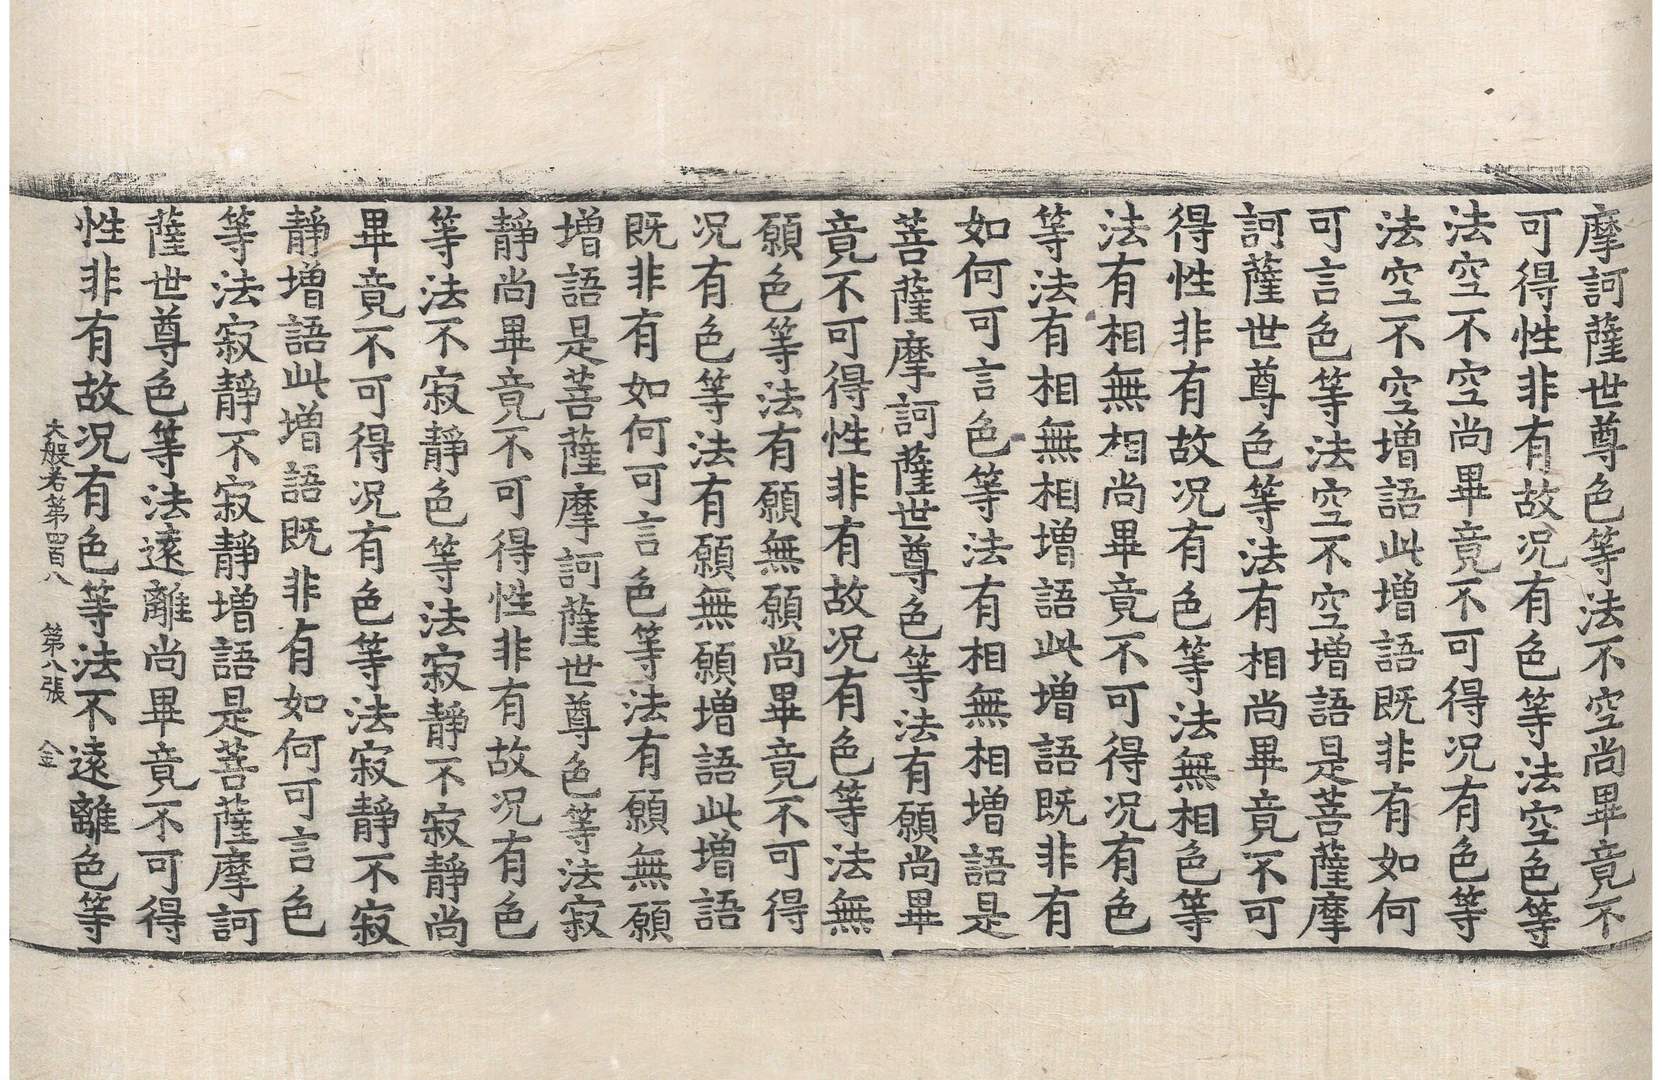 摩訶薩世尊色等法不空尚畢竟不
可得性非有故况有色等法空色等
法空不空尚畢竟不可得况有色等
法空不空增語此增語既非有如何
可言色等法空不空增語是菩薩摩
訶薩世尊色等法有相尚畢竟不可
得性非有故况有色等法無相色等
法有相無相尚畢竟不可得况有色
等法有相無相增語此增語既非有
如何可言色等法有相無相增語是
菩薩摩訶薩世尊色等法有願尚畢
竟不可得性非有故况有色等法無
願色等法有願無願尚畢竟不可得
况有色等法有願無願增語此增語
既非有如何可言色等法有願無願
增語是菩薩摩訶薩世尊色等法寂
靜尚畢竟不可得性非有故况有色
等法不寂靜色等法寂靜不寂靜尚
畢竟不可得况有色等法寂靜不寂
靜增語此增語既非有如何可言色
等法寂靜不寂靜增語是菩薩摩訶
薩世尊色等法遠離尚畢竟不可得
性非有故况有色等法不遠離色等
大般若第四百八 第八張 金